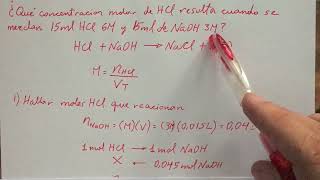 ¿Qué concentración molar de HCl resulta cuando se
mezclan 15ml HCl 6M y 15ml de NaOH 3M?
HCl + NaOH → NaCl +
M = nHCl / VT
1) Hallar moles HCl que reaccionan
nNaOH = (M)(V) = (3M)(0,015L) = 0,045
1 mol HCl → 1 mol NaOH
X ← 0,045 mol NaOH